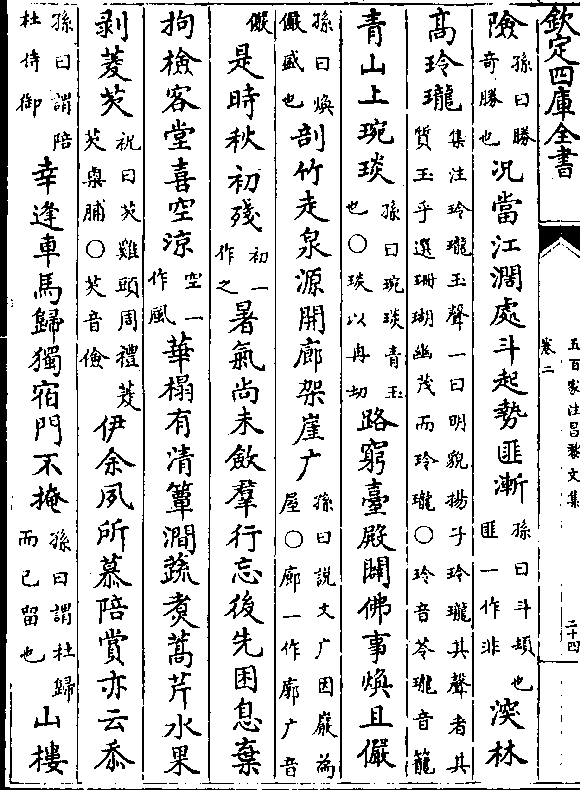 欽定四庫全書
五百家注昌黎文集
卷二
二十四
險孫曰勝奇勝也況當江濶處斗起勢匪漸孫曰斗頓也匪一作非深林
髙玲瓏集注玲瓏玉聲一曰明貌揚子玲瓏其聲者其質玉乎選珊瑚幽茂而玲瓏○玲音苓瓏音籠
青山上琬琰孫曰琬琰青玉也○琰以冉切路窮臺殿闢佛事煥且儼
孫曰煥儼盛也剖竹走泉源開廊架崖广孫曰説文广因巖為屋○廊一作廓广音
儼是時秋初殘初一作之暑氣尚未斂羣行忘後先困息棄
拘檢客堂喜空涼空一作風華榻有清簟澗蔬煑蒿芹水果
剥菱芡祝曰芡雞頭周禮菱芡㮚脯○芡音儉伊余夙所慕陪賞亦云忝
孫曰謂陪杜侍御幸逢車馬歸獨宿門不掩孫曰謂杜歸而已留也山樓